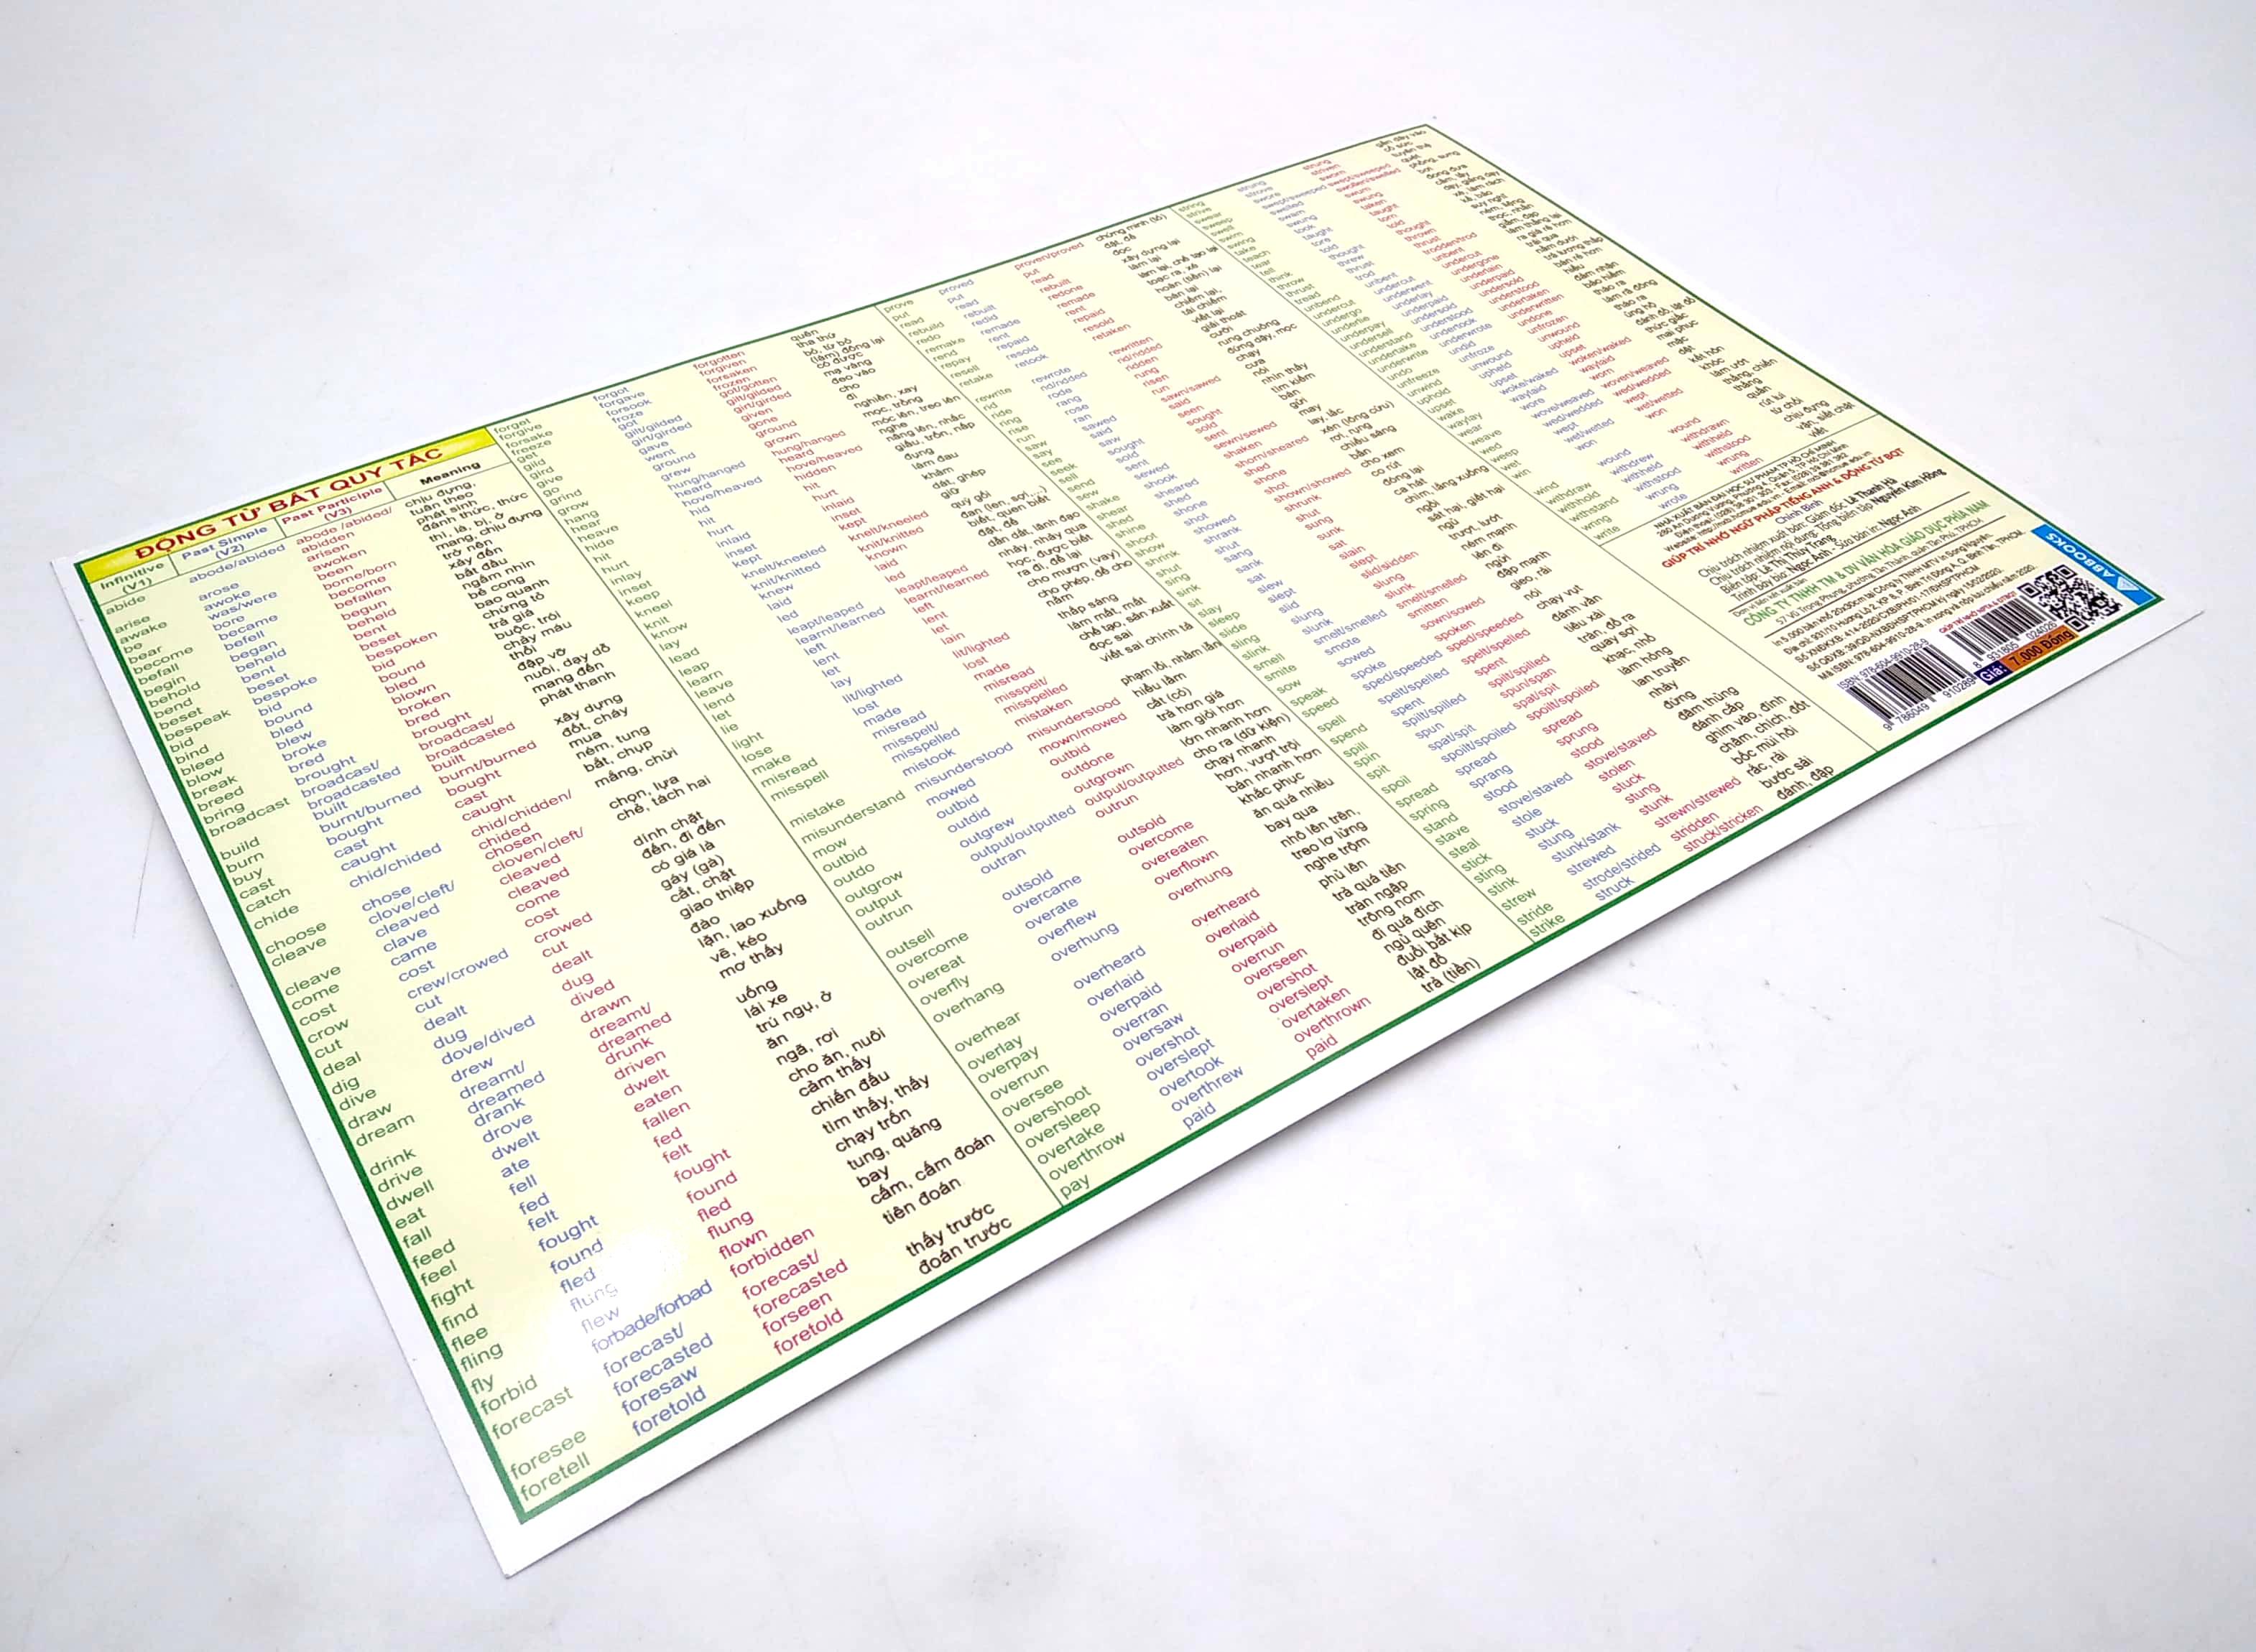 ĐỘNG TỪ BẤT QUY TẮC
Infinitive (V1) Past Simple (V2) Past Participle (V3) Meaning
abide abode/abided abode /abided/ chịu đựng,
abidden tuân theo
arise arose arisen phát sinh
awake awoke awoken đánh thức, thức
be was/were been thì, là, bị, ở
bear bore borne/born mang, chịu đựng
become became become trở nên
befall befell befallen xảy đến
begin began begun bắt đầu
behold beheld beheld ngắm nhìn
bend bent bent bẻ cong
beset beset beset bao quanh
bespeak bespoke bespoken chứng tỏ
bid bid bid trả giá
bind bound bound buộc, trói
bleed bled bled chảy máu
blow blew blown thổi
break broke broken đập vỡ
breed bred bred nuôi, dạy dỗ
bring brought brought mang đến
broadcast broadcast/ broadcast/ phát thanh
broadcasted broadcasted
build built built xây dựng
burn burnt/burned burnt/burned đốt, cháy
buy bought bought mua
cast cast cast ném, tung
catch caught caught bắt, chụp
chide chid/chided chid/chidden/ mắng, chửi
chided
choose chose chosen chọn, lựa
cleave clove/cleft/ cloven/cleft/ chẻ, tách hai
cleaved cleaved
cleave clave cleaved dính chặt
come came come đến, đi đến
cost cost cost có giá là
crow crew/crowed crowed gáy (gà)
cut cut cut cắt, chặt
deal dealt dealt giao thiệp
dig dug dug đào
dive dove/dived dived lặn, lao xuống
draw drew drawn vẽ, kéo
dream dreamt/ dreamt/ mơ thấy
dreamed dreamed
drink drank drunk uống
drive drove driven lái xe
dwell dwelt dwelt trú ngụ, ở
eat ate eaten ăn
fall fell fallen ngã, rơi
feed fed fed cho ăn, nuôi
feel felt felt cảm thấy
fight fought fought chiến đấu
find found found tìm thấy, thấy
flee fled fled chạy trốn
fling flung flung tung, quăng
fly flew flown bay
forbid forbade/forbad forbidden cấm, cấm đoán
forecast forecast/ forecast/ tiên đoán
forecasted forecasted
foresee foresaw forseen thấy trước
foretell foretold foretold đoán trước
forget forgot forgotten quên
forgive forgave forgiven tha thứ
forsake forsook forsaken bỏ, từ bỏ
freeze froze frozen (làm) đông lại
get got got/gotten có được
gild gilt/gilded gilt/gilded mạ vàng
gird girt/girded girt/girded đeo vào
give gave given cho
go went gone đi
grind ground ground nghiền, xay
grow grew grown mọc, trồng
hang hung/hanged hung/hanged móc lên, treo lên
hear heard heard nghe
heave hove/heaved hove/heaved nâng lên, nhấc
hide hid hidden giấu, trốn, nấp
hit hit hit đụng
hurt hurt hurt làm đau
inlay inlaid inlaid khảm
inset inset inset dát, ghép
keep kept kept giữ
kneel knelt/kneeled knelt/kneeled quỳ gối
knit knit/knitted knit/knitted đan (len, sợi,...)
know knew known biết, quen biết
lay laid laid đặt, để
lead led led dẫn dắt, lãnh đạo
leap leapt/leaped leapt/leaped nhảy, nhảy qua
learn learnt/learned learnt/learned học, được biết
leave left left ra đi, để lại
lend lent lent cho mượn (vay)
let let let cho phép, để cho
lie lay lain nằm
light lit/lighted lit/lighted thắp sáng
lose lost lost làm mất, mất
make made made chế tạo, sản xuất
misread misread misread đọc sai
misspell misspelt/ misspelt/ viết sai chính tả
misspelled misspelled
mistake mistook mistaken phạm lỗi, nhầm lẫn
misunderstand misunderstood misunderstood hiểu lầm
mow mowed mown/mowed cắt (cỏ)
outbid outbid outbid trả hơn giá
outdo outdid outdone làm giỏi hơn
outgrow outgrew outgrown lớn nhanh hơn
output output/outputted output/outputted cho ra (dữ kiện)
outrun outran outrun chạy nhanh hơn, vượt trội
outsell outsold outsold bán nhanh hơn
overcome overcame overcome khắc phục
overeat overate overeaten ăn quá nhiều
overfly overflew overflown bay qua
overhang overhung overhung nhô lên trên,
treo lơ lửng
overhear overheard overheard nghe trộm
overlay overlaid overlaid phủ lên
overpay overpaid overpaid trả quá tiền
overrun overran overrun tràn ngập
oversee oversaw overseen trông nom
overshoot overshot overshot đi quá đích
oversleep overslept overslept ngủ quên
overtake overtook overtaken đuổi bắt kịp
overthrow overthrew overthrown lật đổ
pay paid paid trả (tiền)
prove proved proven/proved chứng minh (tỏ)
put put put đặt, để
read read read đọc
rebuild rebuilt rebuilt xây dựng lại
redo redid redone làm lại
remake remade remade làm lại, chế tạo lại
rend rent rent toạc ra, xé
repay repaid repaid hoàn (tiền) lại
resell resold resold bán lại
retake retook retaken chiếm lại,
tái chiếm
rewrite rewrote rewritten viết lại
rid rid/ridded rid/ridded giải thoát
ride rode ridden cưỡi
ring rang rung rung chuông
rise rose risen đứng dậy, mọc
run ran run chạy
saw sawed sawn/sawed cưa
say said said nói
see saw seen nhìn thấy
seek sought sought tìm kiếm
sell sold sold bán
send sent sent gửi
sew sewed sewn/sewed may
shake shook shaken lay, lắc
shear sheared shorn/sheared xén (lông cừu)
shed shed shed rơi, rụng
shine shone shone chiếu sáng
shoot shot shot bắn
show showed shown/showed cho xem
shrink shrank shrunk co rút
shut shut shut đóng lại
sing sang sung ca hát
sink sank sunk chìm, lặng xuống
sit sat sat ngồi
slay slew slain sát hại, giết hại
sleep slept slept ngủ
slide slid slid/slidden trượt, lướt
sling slung slung ném mạnh
slink slunk slunk lẻn đi
smell smelt/smelled smelt/smelled ngửi
smite smote smitten đập mạnh
sow sowed sown/sowed gieo, rải
speak spoke spoken nói
speed sped/speeded sped/speeded chạy vụt
spell spelt/spelled spelt/spelled đánh vần
spend spent spent tiêu xài
spill spilt/spilled spilt/spilled tràn, đổ ra
spin spun spun/span quay sợi
spit spat/spit spat/spit khạc, nhổ
spoil spoilt/spoiled spoilt/spoiled làm hỏng
spread spread spread lan truyền
spring sprang sprung nhảy
stand stood stood đứng
stave stove/staved stove/staved đâm thủng
steal stole stolen đánh cắp
stick stuck stuck ghim vào, đính
sting stung stung châm, chích, đốt
stink stunk/stank stunk bốc mùi hôi
strew strewed strewn/strewed rắc, rải
stride strode/strided stridden bước sải
strike struck struck/stricken đánh, đập
string strung strung gắn dây vào
strive strove striven cố sức
swear swore sworn tuyên thệ
sweep swept/sweeped swept/sweeped quét
swell swelled swollen/swelled phồng, sưng
swim swam swum bơi
swing swung swung đong đưa
take took taken cầm, lấy
teach taught taught dạy, giảng dạy
tear tore torn xé, làm rách
tell told told kể, bảo
think thought thought suy nghĩ
throw threw thrown ném, liệng
thrust thrust thrust thọc, nhấn
tread trod trodden/trod giẫm, đạp
unbend unbent unbent làm thẳng lại
undercut undercut undercut ra giá rẻ hơn
undergo underwent undergone trải qua
underlie underlay underlain nằm dưới
underpay underpaid underpaid trả lương thấp
undersell undersold undersold bán rẻ hơn
understand understood understood hiểu
undertake undertook undertaken đảm nhận
underwrite underwrote underwritten bảo hiểm
undo undid undone tháo ra
unfreeze unfroze unfrozen làm rã đông
unwind unwound unwound tháo ra
uphold upheld upheld ủng hộ
upset upset upset đánh đổ, lật đổ
wake woke/waked woken/waked thức giấc
waylay waylaid waylaid mai phục
wear wore worn mặc
weave wove/weaved woven/weaved dệt
wed wed/wedded wed/wedded kết hôn
weep wept wept khóc
wet wet/wetted wet/wetted làm ướt
win won won thắng, chiến thắng
wind wound wound quấn
withdraw withdrew withdrawn rút lui
withhold withheld withheld từ chối
withstand withstood withstood chịu đựng
wring wrung wrung vặn, siết chặt
write wrote written viết
NHÀ XUẤT BẢN ĐẠI HỌC SƯ PHẠM TP HỒ CHÍ MINH
280 An Dương Vương, Phường 4, Quận 5, TP Hồ Chí Minh
Điện thoại: (028) 38 301 303 - Fax: (028) 39 381 382
Website: http://nxb.hcmue.edu.vn - Email: nxb@hcmue.edu.vn
GIÚP TRÍ NHỚ NGỮ PHÁP TIẾNG ANH & ĐỘNG TỪ BQT
Chính Bình
Chịu trách nhiệm xuất bản: Giám đốc Lê Thanh Hà
Chịu trách nhiệm nội dung: Tổng biên tập Nguyễn Kim Hồng
Biên tập: Lê Thị Thùy Trang
Trình bày bìa: Ngọc Anh - Sửa bản in: Ngọc Anh
Đơn vị liên kết xuất bản
CÔNG TY TNHH TM & DV VĂN HÓA GIÁO DỤC PHÍA NAM
57 Vũ Trọng Phụng, phường Tân Thành, quận Tân Phú, TPHCM
In 5.000 bản khổ 20x30cm tại Công ty TNHH MTV in Song Nguyên
Địa chỉ: 931/10 Hương Lộ 2, KP 8, P. Bình Trị Đông A, Q. Bình Tân, TPHCM.
Số XNĐKXB: 414-2020/CXBIPH/01-17/ĐHSPTPHCM
Số QĐXB: 39/QĐ-NXBĐHSPTPHCM ký ngày 15/02/2020.
Mã ISBN: 978-604-9910-28-9. In xong và nộp lưu chiểu năm 2020.
ISBN: 978-604-9910-28-9
9 786049 910289
8 931805 024026
Giá: 7.000 Đồng
ABBOOKS